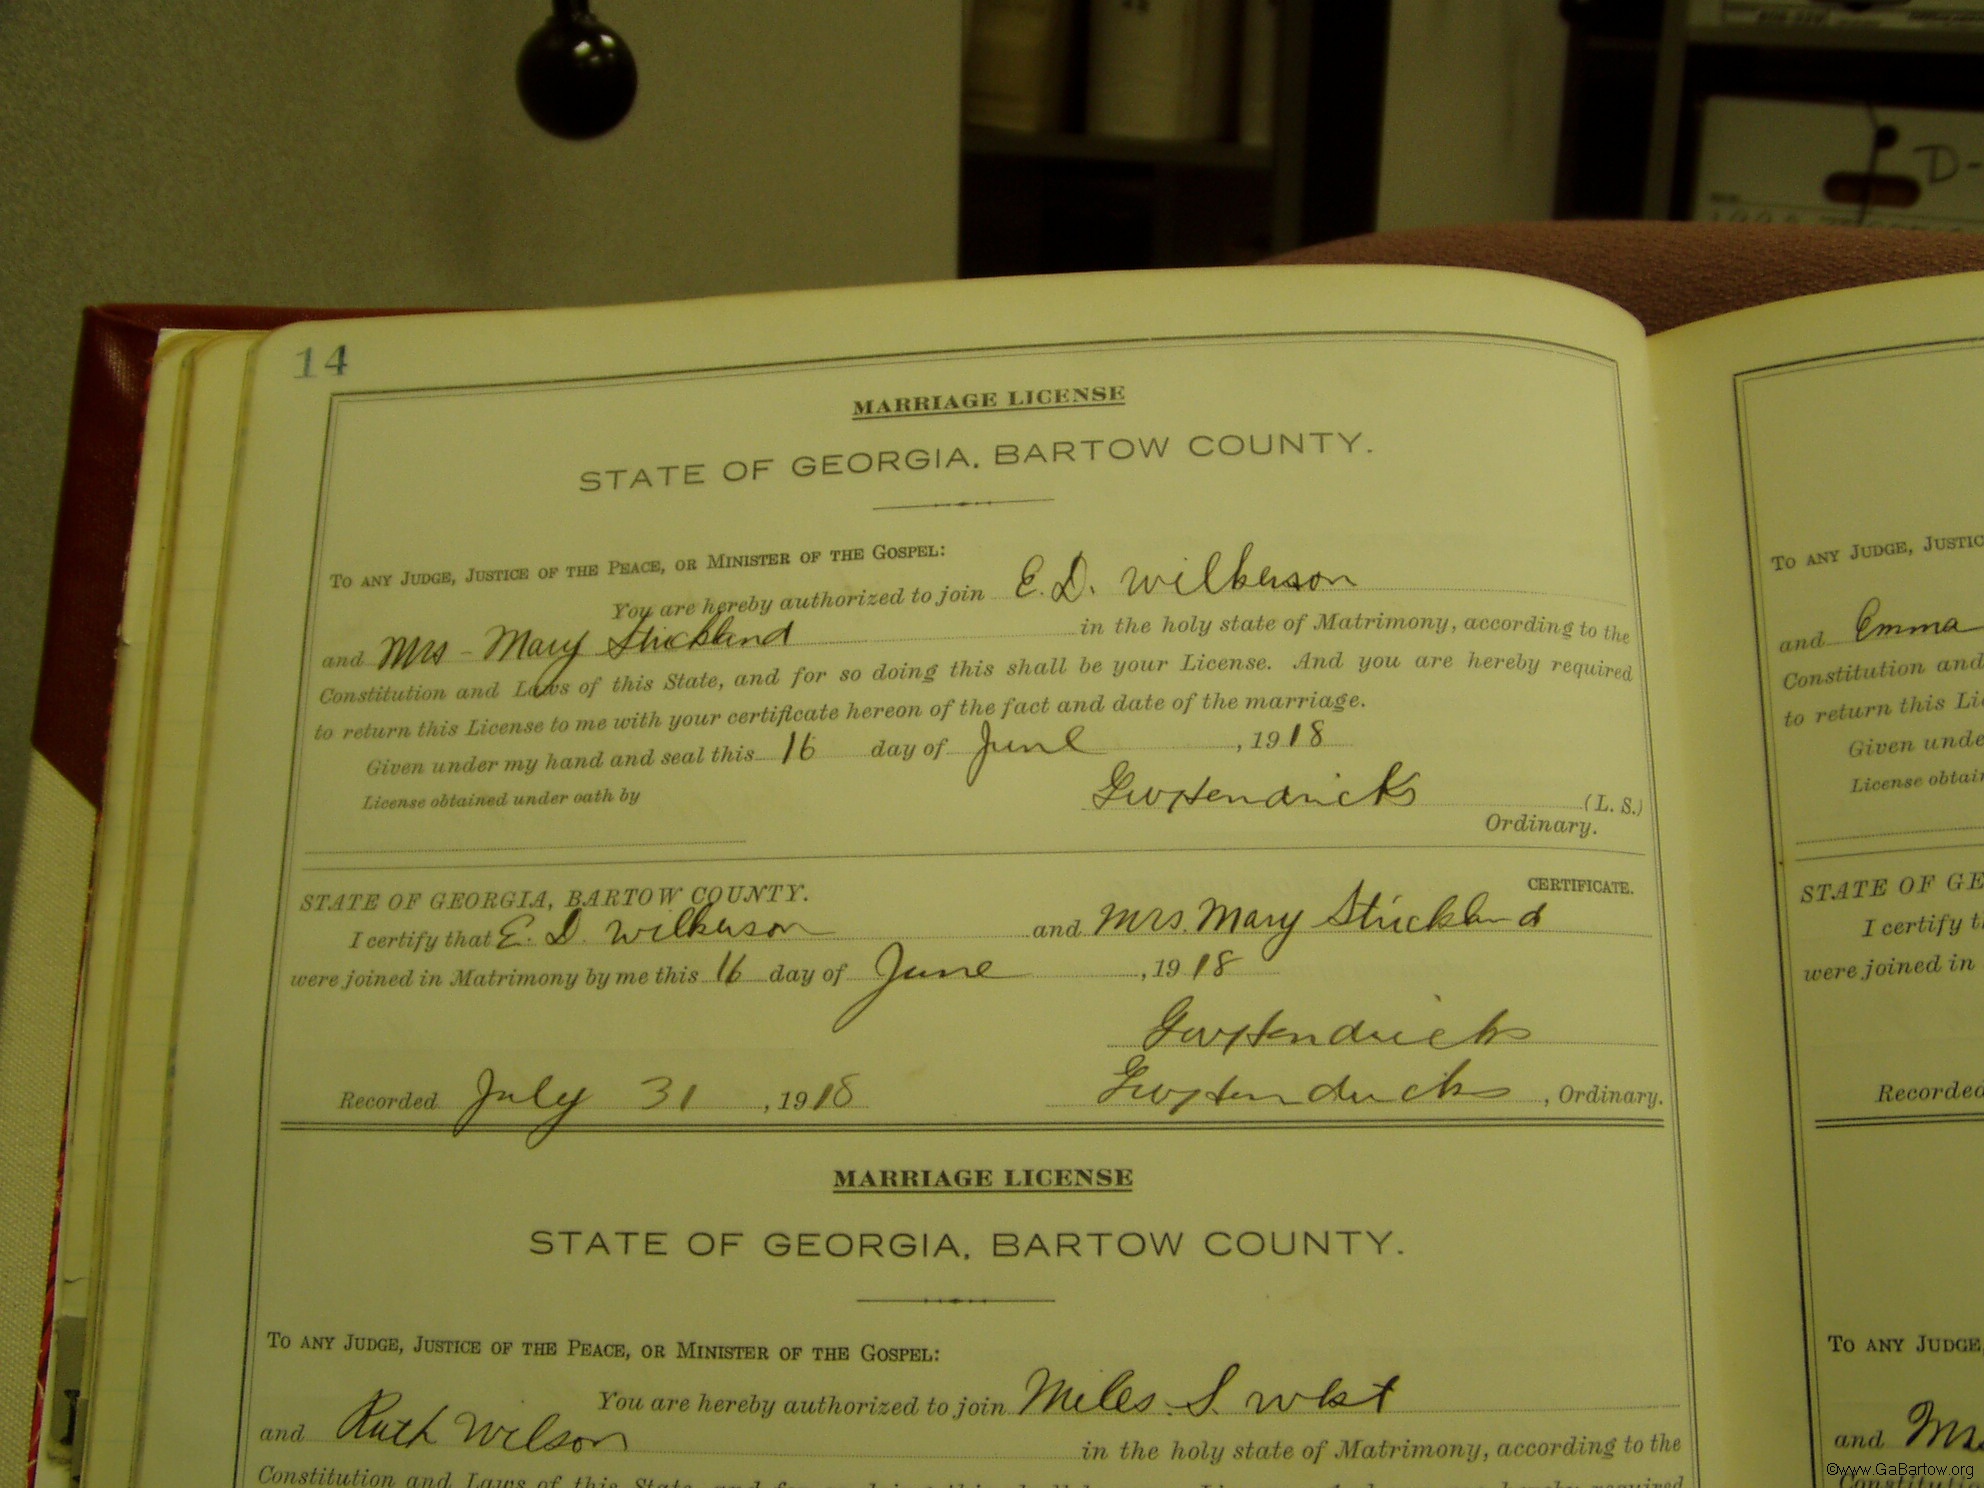 14
MARRIAGE LICENSE
STATE OF GEORGIA, BARTOW COUNTY.
TO ANY JUDGE, JUSTICE OF THE PEACE, OR MINISTER OF THE GOSPEL:
You are hereby authorized to join E. D. Wilkerson
and Mrs - Mary Strickland in the holy state of Matrimony, according to the
Constitution and Laws of this State, and for so doing this shall be your License. And you are hereby required
to return this License to me with your certificate hereon of the fact and date of the marriage.
Given under my hand and seal this 16 day of June, 1918
License obtained under oath by
GW Hendricks (L. S.)
Ordinary.
STATE OF GEORGIA, BARTOW COUNTY. CERTIFICATE.
I certify that E. D. Wilkerson and Mrs. Mary Strickland
were joined in Matrimony by me this 16 day of June, 1918
GW Hendricks
Recorded July 31, 1918 GW Hendricks, Ordinary.
MARRIAGE LICENSE
STATE OF GEORGIA, BARTOW COUNTY.
TO ANY JUDGE, JUSTICE OF THE PEACE, OR MINISTER OF THE GOSPEL:
You are hereby authorized to join Miles. S. West
and Ruth Wilson in the holy state of Matrimony, according to the
Constitution and Laws of this State,
TO ANY JUDGE, JUSTIC
and Emma
Constitution and
to return this Li
Given unde
License obtai
STATE OF GE
I certify t
were joined in
Recorded
TO ANY JUDGE,
and
D-
©www.GaBartow.org